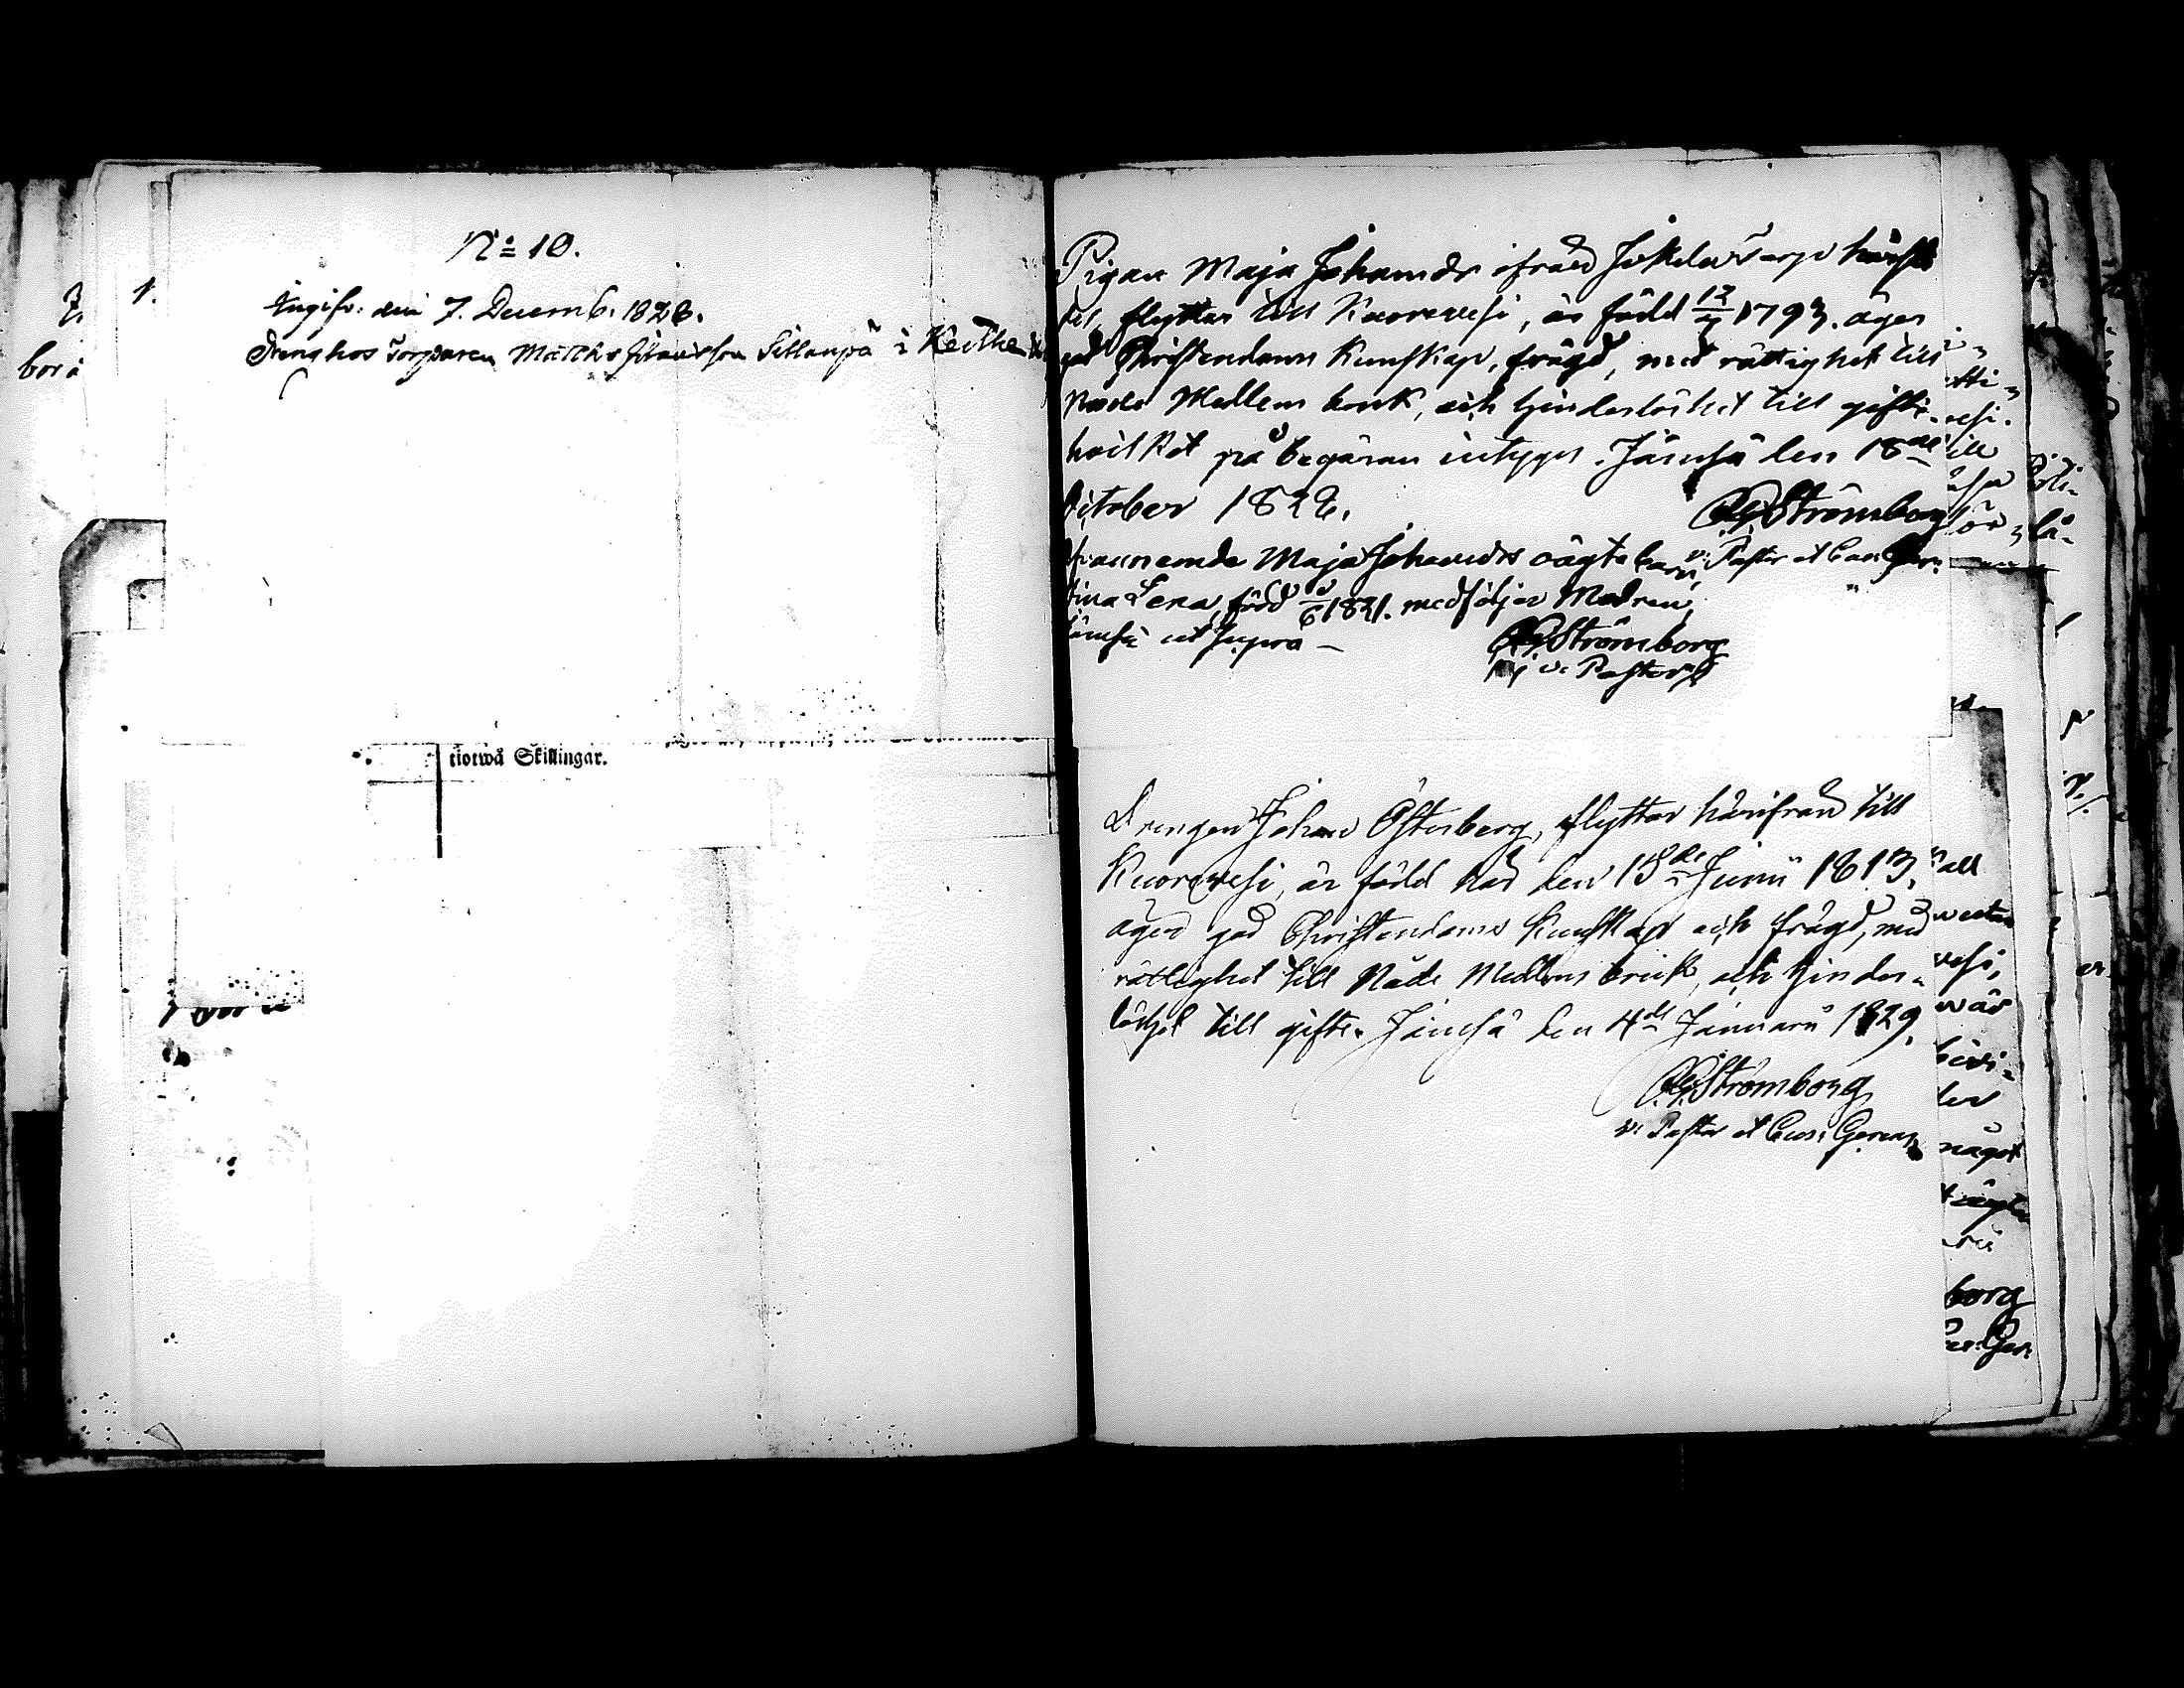 No 10.
1.
Ingifv: den 7. Decemb. 1828.
Dreng hos Torparen Matths Johansson Sillanpä i Keithe
bor i
tiotwå Skillingar.
Pigan Maja Johansdr ifrån Jokela Torp härstä
des, flyttar till Kuorevesi, är född 12/4 1793. äger
god Christendoms Kunskap, frägd, med rättighet till
Nåde Medlens bruk, och hinderlöshet till gifte
hvilket på begäran intygas. Jämsä den 18de
October 1828.
CGStrömborg
v: Pastor et Cur: Ger:
Ofvannemde Maja Johansdrs oägta barn,
Lena, född 1821. medföljer Modren,
Jämsä ut supra –
CGStrömborg
v: Pastor
Drengen Johan Österberg, flyttar härifrån till
Kuorevesi, är född här den 15de Junii 1813,
äger god Christendoms Kunskap och frägd, med
rättighet till Nåde Medlens bruk, och hinder-
löshet till gifte. Jämsä den 4de Januarii 1829.
CGStrömborg
v: Pastor et Cur: Gerens
något
borg
Cur: Ger: